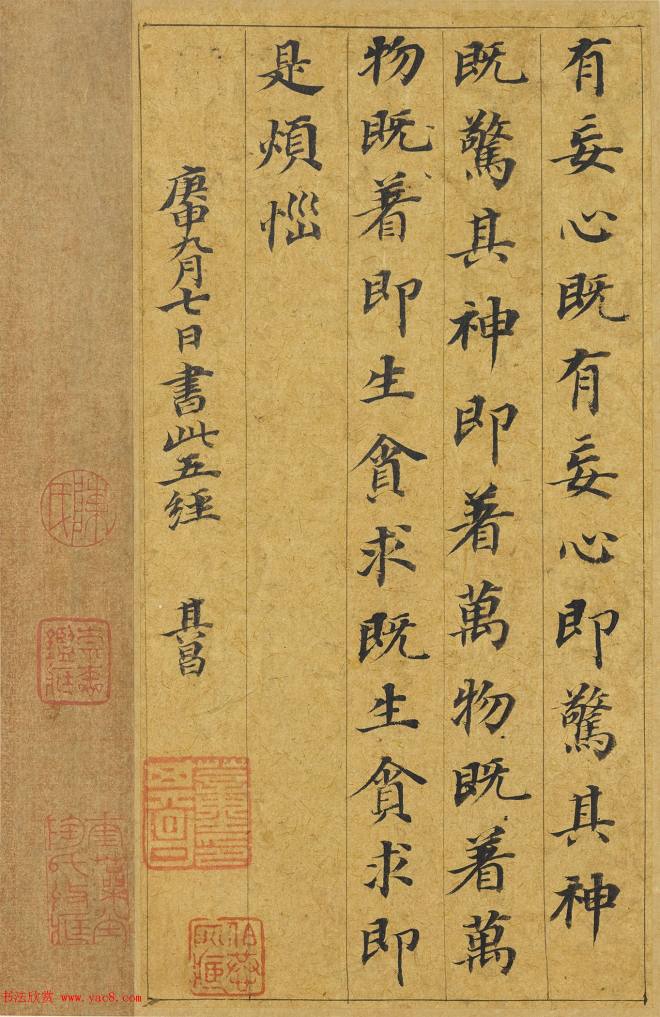 有妄心既有妄心即驚其神
既驚其神即着萬物既着萬
物既着即生貪求既生貪求即
是煩惱
庚申九月七日書此五經 其昌
书法欣赏 www.yac8.com